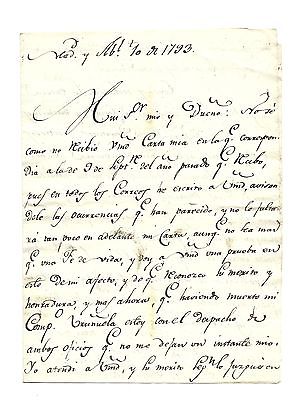 y Ab.l 10 de 1793.
Mui S.r mio y Dueño: No sé
como no Recibio Vmd Carta mia en la q.e correspon
dia a la de 9 de Sept.re del año pasado q.e Recibo,
pues en todos los Correos he escrito a Vmd, avisan
dole las ocurrencias q.e han parecido, y no le falta
rá tan poco en adelante mi Carta, aunq.e no sea mas
q.e una Fe de vida, y doy a Vmd una prueba en
esto De mi afecto, y de q.e Reconozco su merito y
hontadura, y mas ahora q.e haviendo muerto mi
Comp.o Vruñuela estoy con el despacho de
ambos oficios q.e no me dejan un instante mio.
Yo atendi a Vmd, y su merito lo juzgué en